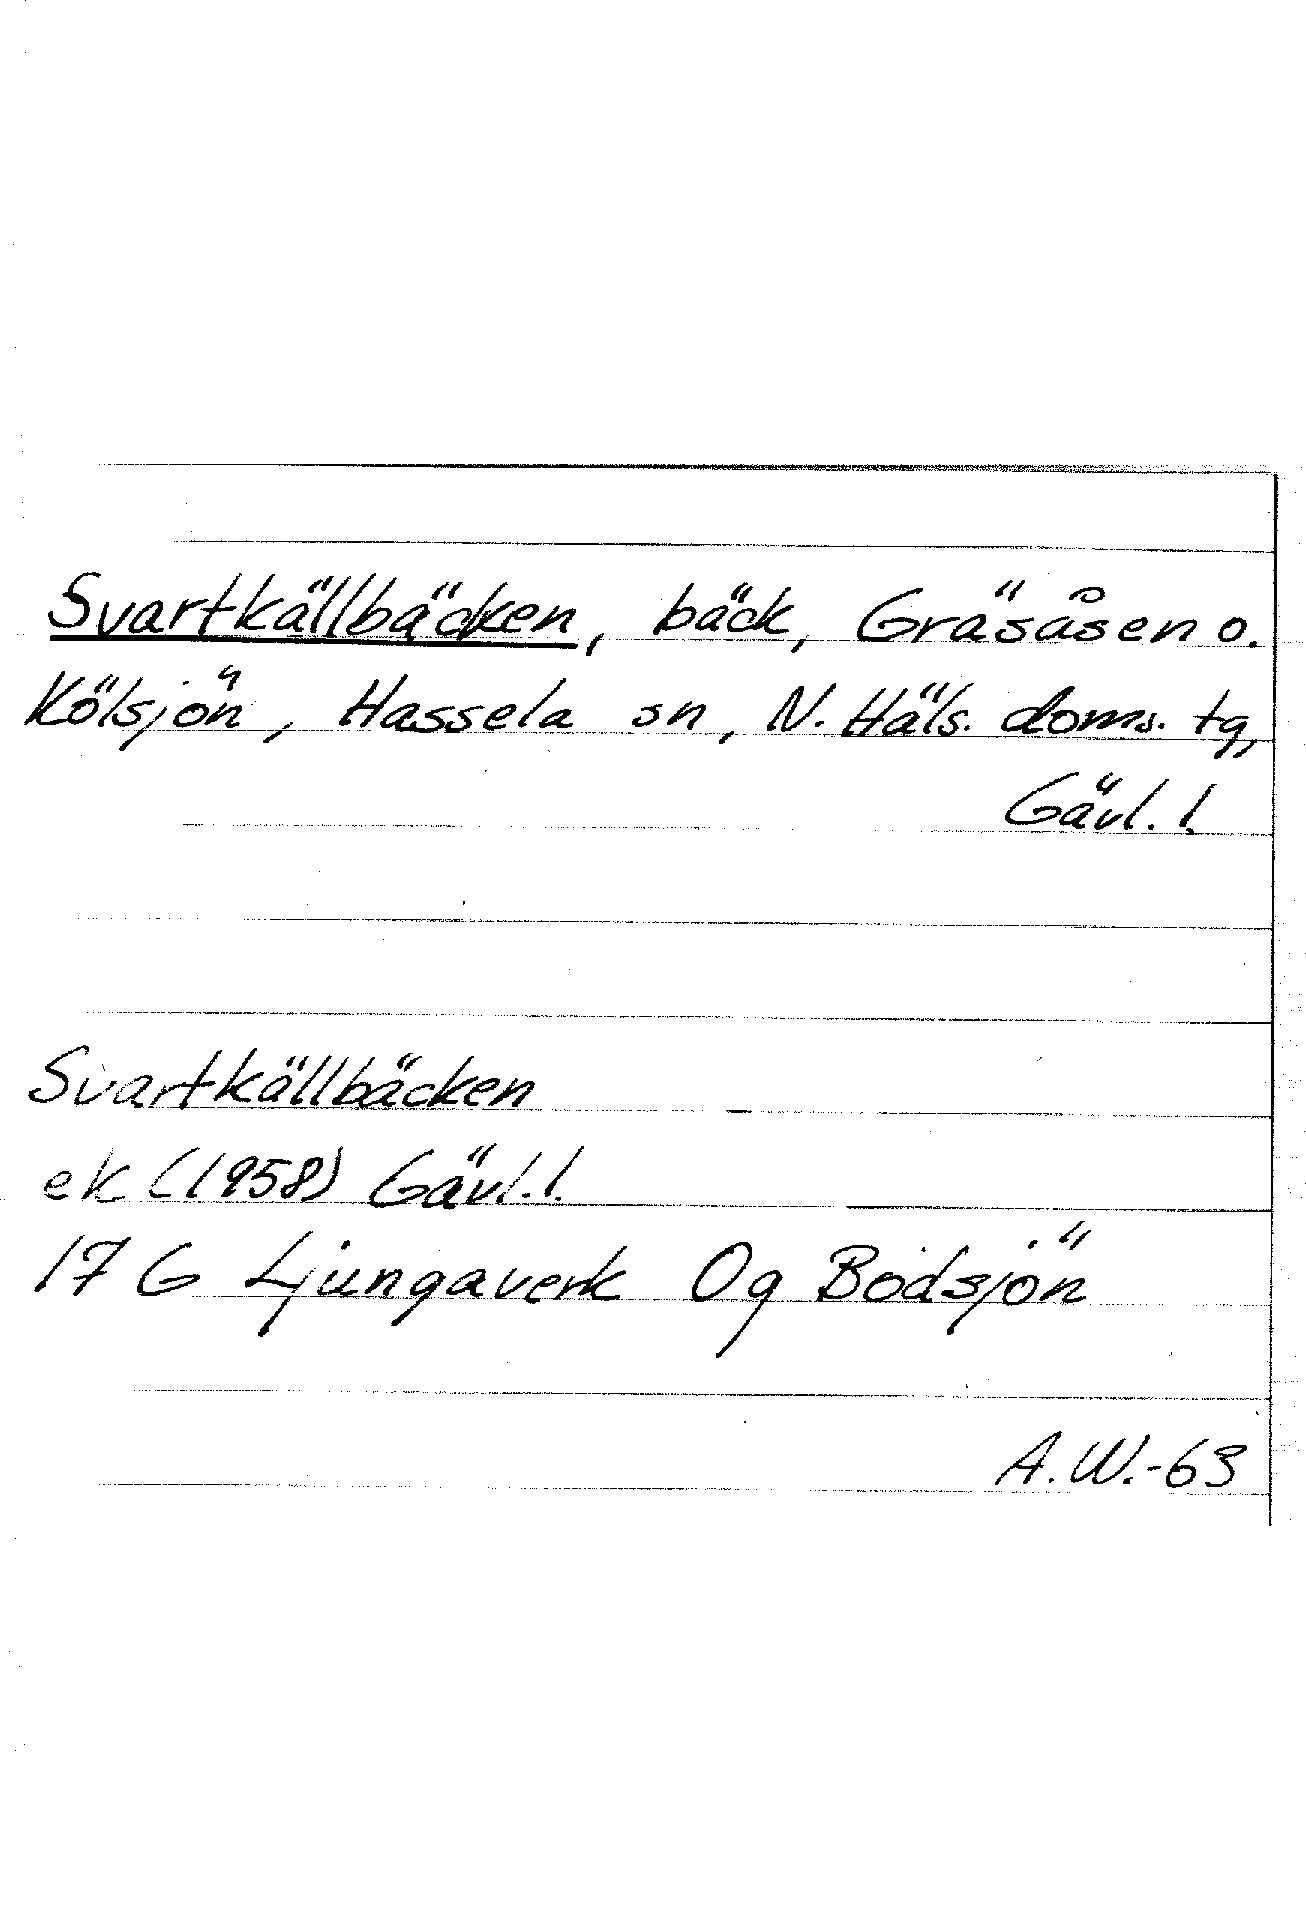 Svartkällbäcken, bäck, Gräsåsen o.
Kölsjön, Hassela sn, N. Häls. doms. tg,
Gävl. l.
Svartkällbäcken
ek (1958) Gävl. l.
17 G Ljungaverk 0g Bodsjön
A.W.-63